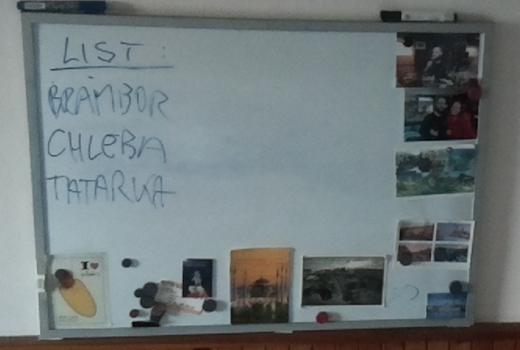 LIST:
BRAMBOR
CHLEBA
TATARKA
I ❤